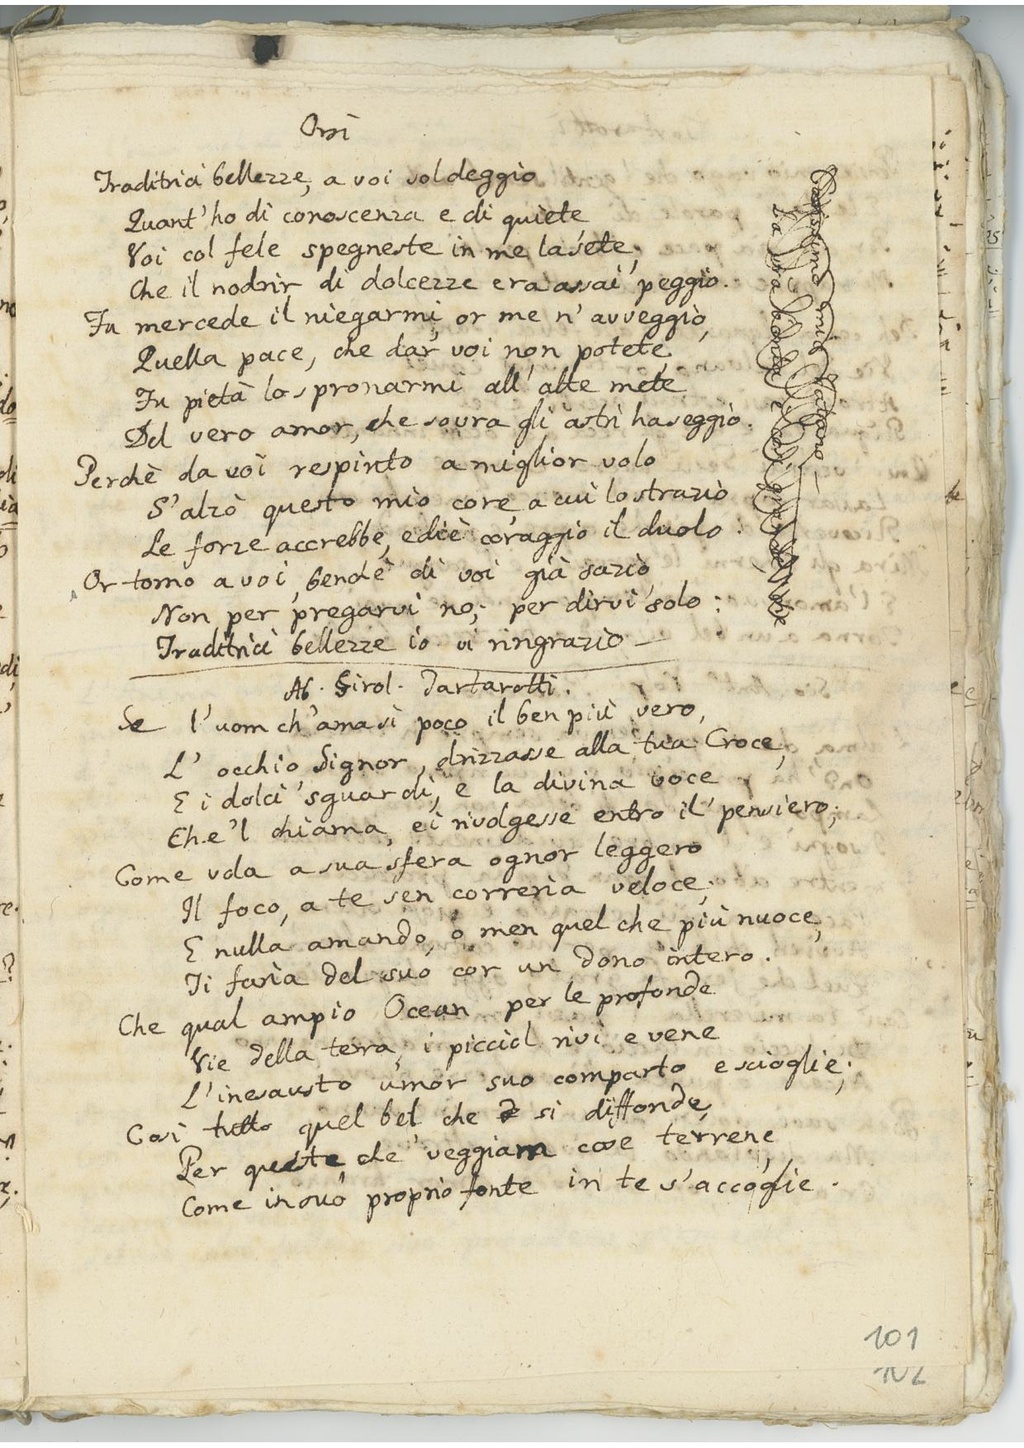 Orsi
Traditrici bellezze, a voi sol deggio
Quant'ho di conoscenza e di quiete
Voi col fele spegneste in me la sete;
Che il nodrir di dolcezze era assai peggio.
Fu mercede il niegarmi, or me n'avveggio,
Quella pace, che dar voi non potete.
Fu pietà lo spronarmi all'alte mete
Del vero amor, che sovra gli astri ha seggio.
Perchè da voi respinto a miglior volo
S'alzò questo mio core, a cui lo strazio
Le forze accrebbe, e diè coraggio il duolo:
Or torno a voi, benchè di voi già sazio,
Non per pregarvi no; per dirvi solo:
Traditrici bellezze io vi ringrazio
Ab. Girol. Tartarotti.
Se l'uom ch'ama sì poco il ben più vero,
L'occhio Signor, drizzasse alla tua Croce,
E i dolci sguardi, e la divina voce
Che'l chiama, ei rivolgesse entro il pensiero;
Come vola a sua sfera ognor leggero
Il foco, a te sen correria veloce;
E nulla amando, o men quel che più nuoce,
Ti faria del suo cor un dono intero.
Che qual ampio Ocean per le profonde
Vie della terra, i picciol rivi e vene
L'inesausto umor suo comparte e scioglie;
Così tutto quel bel che si diffonde
Per queste, che veggiam cose terrene,
Come in suo proprio fonte in te s'accoglie.
Carissimo mio
La sua bontà è
101
102